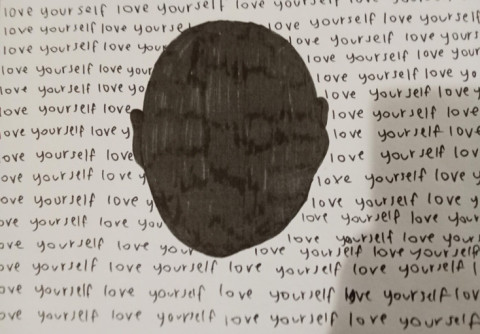 love yourself love yourself love yourself love yourself
love yourself love yourself love yourself
love yourself love you love yourself love your
love yourself love you love yourself love yo
love yourself love yo love yourself love
love yourself love love yourself love
love yourself love y love yourself love
love yourself love yourself lov
ove yourself love y love yourself love y
ove yourself love y love yourself love y
ove yourself love yo love yourself love your
ove yourself love you love yourself love your
love yourself love yourself
ove yourself love yourself love yourself l
ove yourself love yourself love yourself lov
ove yourself love yourself love yourself